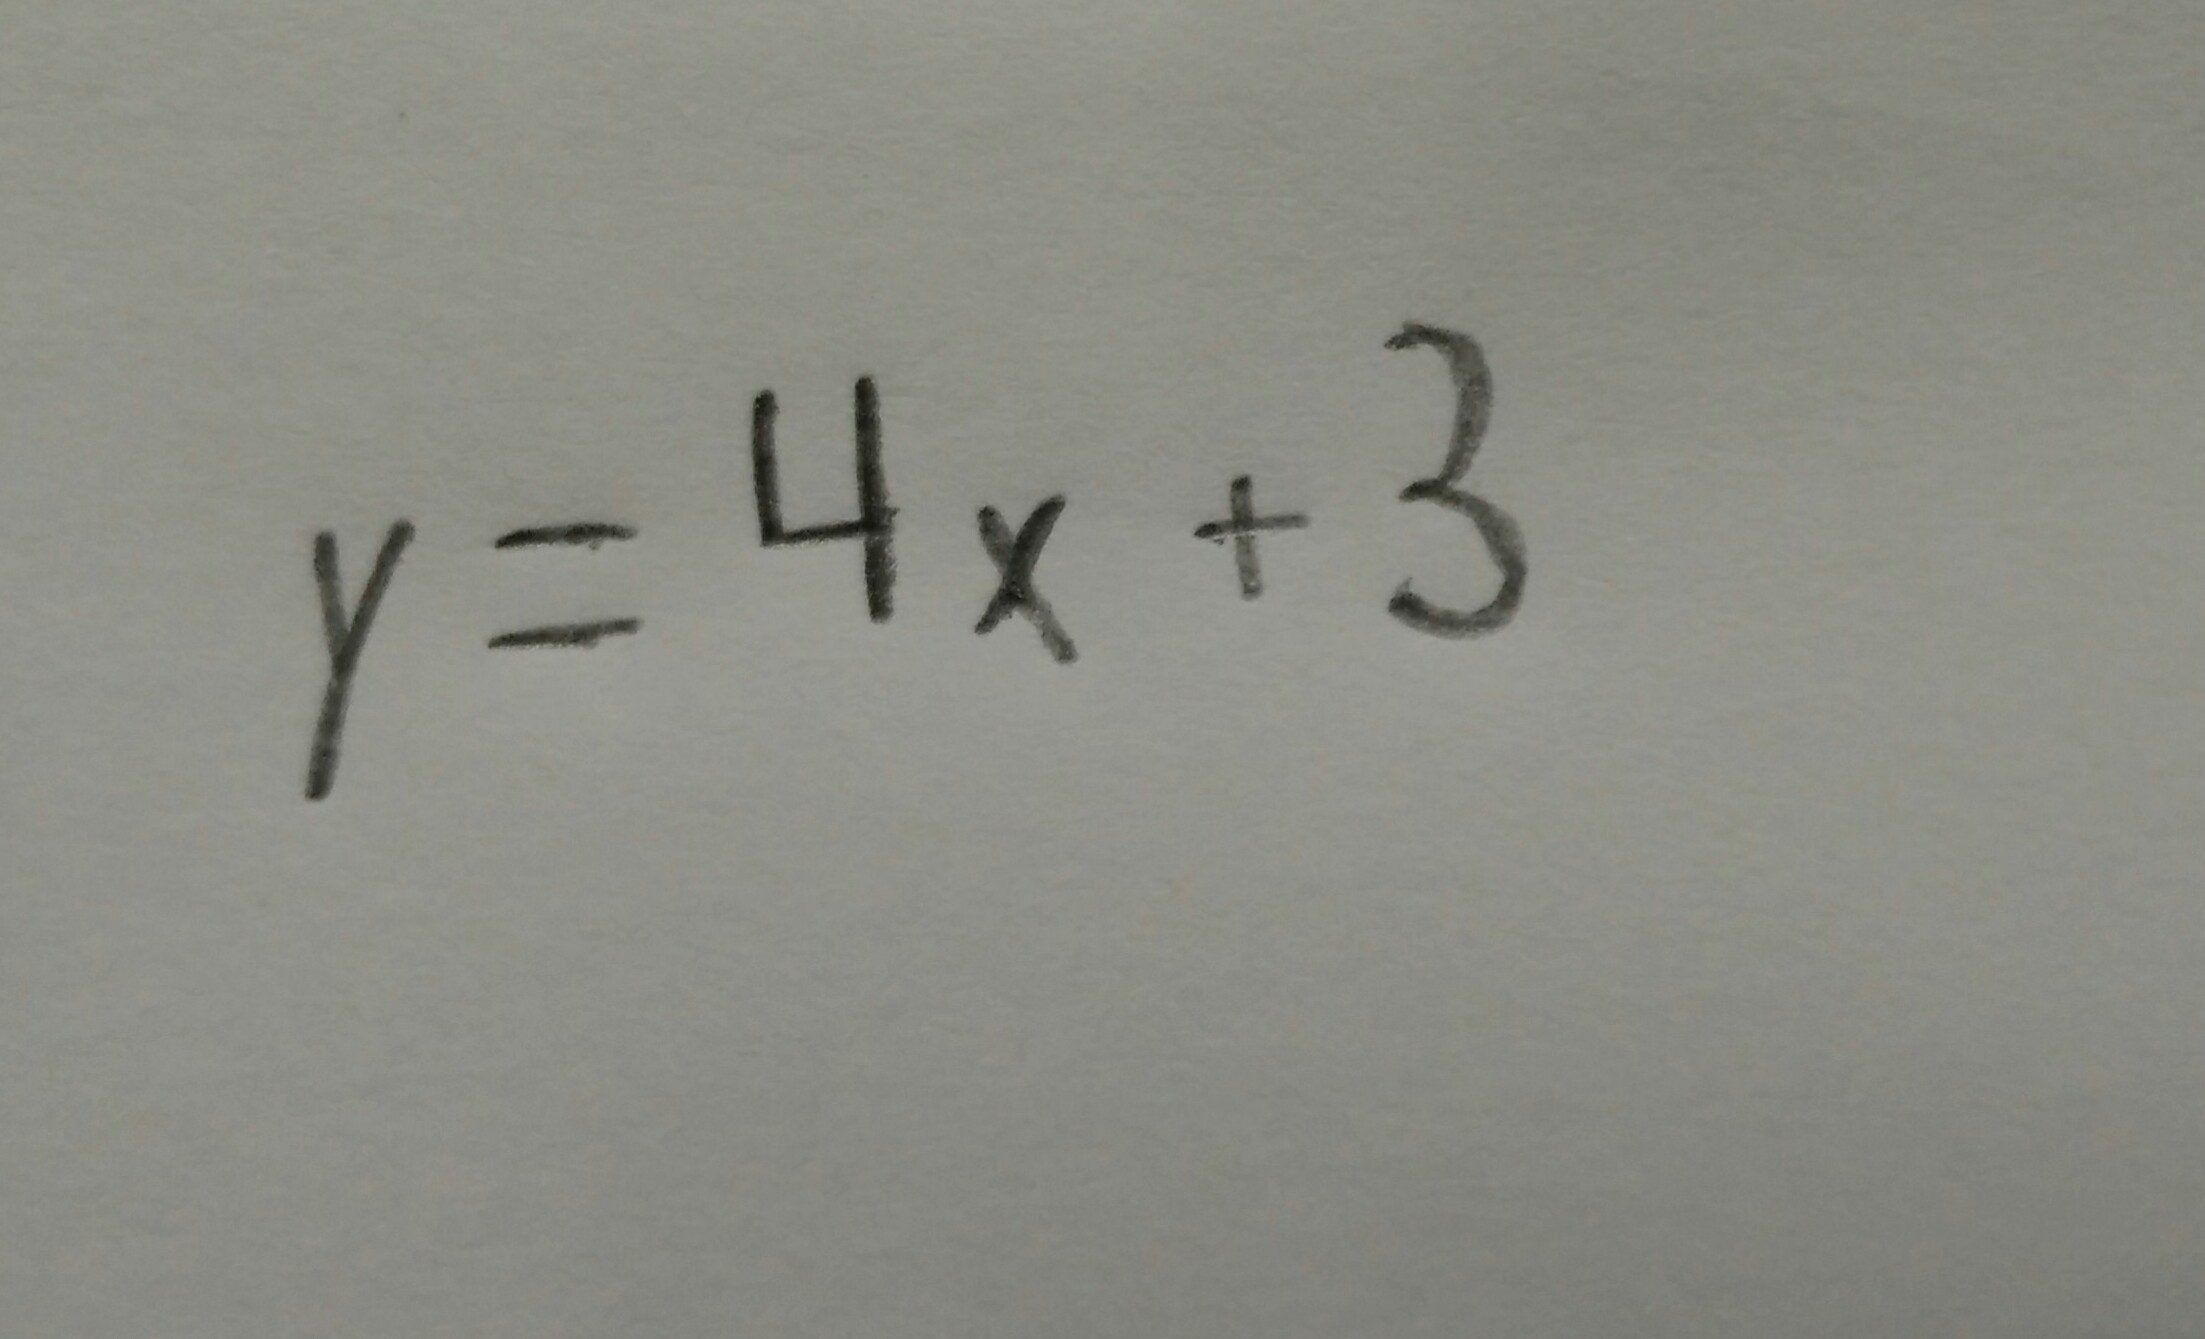 y = 4x + 3